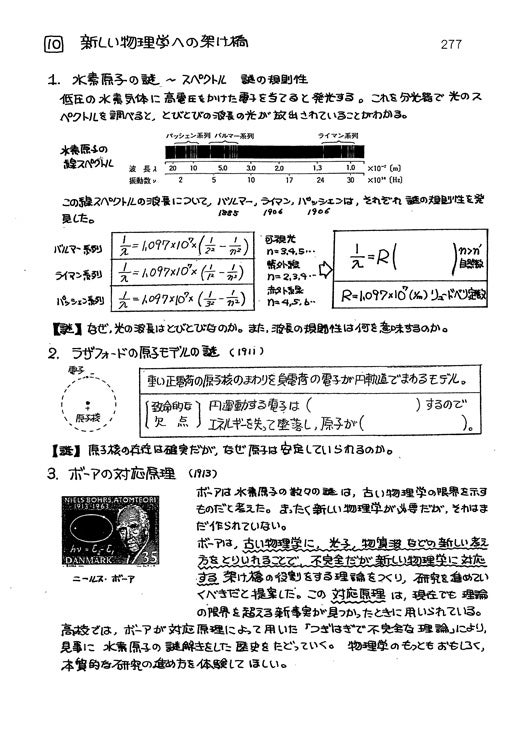 10 新しい物理学への架け橋
277
1. 水素原子の謎 ～ スペクトル 謎の規則性
低圧の水素気体に高電圧をかけた電子を当てると発光する。これを分光器で光のス
ペクトルを調べると、とびとびの波長の光が放出されていることがわかる。
パッシェン系列 バルマー系列 ライマン系列
水素原子の
線スペクトル
波長λ 20 10 5.0 3.0 2.0 1.3 1.0 ×10⁻⁷ (m)
振動数ν 2 5 10 17 24 30 ×10¹⁴ (Hz)
この線スペクトルの波長について、バルマー、ライマン、パッシェンは、それぞれ 謎の規則性を発
1885 1906 1906
見した。
バルマー系列 1/λ = 1,097×10⁷×(1/2² − 1/n²) 可視光 n=3,4,5…
ライマン系列 1/λ = 1,097×10⁷×(1/1² − 1/n²) 紫外線 n=2,3,4…
パッシェン系列 1/λ = 1,097×10⁷×(1/3² − 1/n²) 赤外線 n=4,5,6…
⇨
1/λ = R( ) n>n' 自然数
R=1,097×10⁷(1/m) リュードベリ定数
【謎】なぜ、光の波長はとびとびなのか。また、波長の規則性は何を意味するのか。
2. ラザフォードの原子モデルの謎 (1911)
電子
原子核
重い正電荷の原子核のまわりを負電荷の電子が円軌道でまわるモデル。
致命的な欠点
円運動する電子は ( ) するので
エネルギーを失って墜落し、原子が ( )。
【謎】原子核の存在は確実だが、なぜ原子は安定していられるのか。
3. ボーアの対応原理 (1913)
NIELS BOHRS ATOMTEORI
1913-1963
hν = E₂-E₁
DANMARK 35
ニールス・ボーア
ボーアは水素原子の数々の謎は、古い物理学の限界を示す
ものだと考えた。まったく新しい物理学が必要だが、それはま
だ作られていない。
ボーアは、古い物理学に、光子、物質波などの新しい考え
方をとりいれることで、不完全だが新しい物理学に対応
する 架け橋の役割をする理論をつくり、研究を進めてい
くべきだと提案した。この 対応原理 は、現在でも理論
の限界を超える新事実が見つかったときに用いられている。
高校では、ボーアが対応原理によって用いた「つぎはぎで不完全な理論」により、
見事に水素原子の謎解きをした歴史をたどっていく。物理学のもっともおもしろく、
本質的な研究の進め方を体験してほしい。